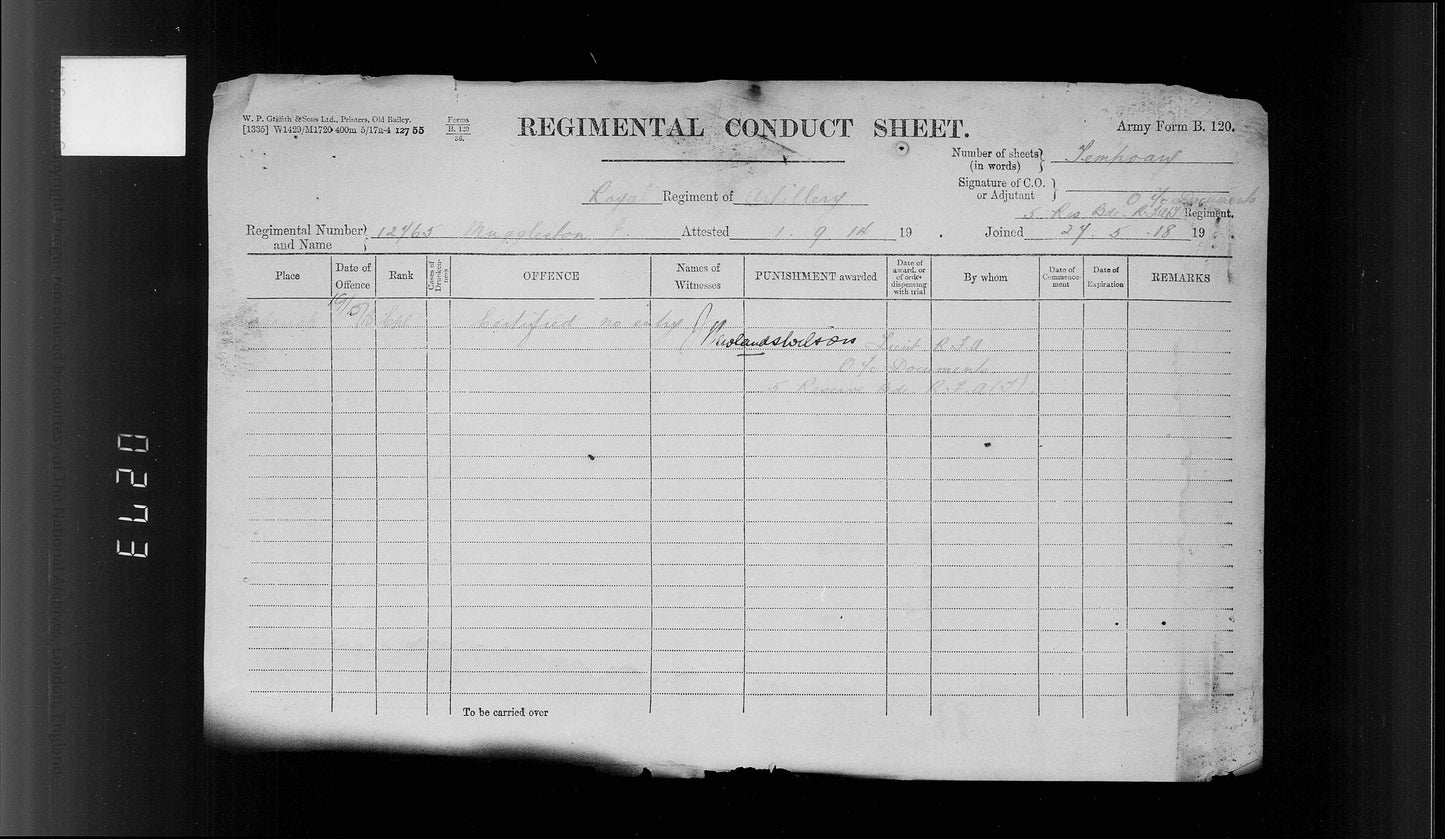 W. P. Griffith & Sons Ltd., Printers, Old Bailey.
[1335] W1429/M1720 400m 5/17n-4 127 55
Forms
B. 120
REGIMENTAL CONDUCT SHEET.
Army Form B. 120.
Number of sheets (in words) } Tempoary
Signature of C.O. or Adjutant }
Royal Regiment of Artillery
O i/c Documents
5 Res. Bde R.F.A(T) Regiment.
Regimental Number and Name } 12765 Muggleston J. Attested 1. 9 14 19 . Joined 27 5 .18 19 .
Place
Date of Offence
Rank
Cases of Drunkenness
OFFENCE
Names of Witnesses
PUNISHMENT awarded
Date of award, or of order dispensing with trial
By whom
Date of Commencement
Date of Expiration
REMARKS
Cpl Certified no entry
Lieut R.F.A
O i/c Documents
5 Reserve Bde R.F.A(T).
To be carried over
0273
courtesy of The National Archives, London, England